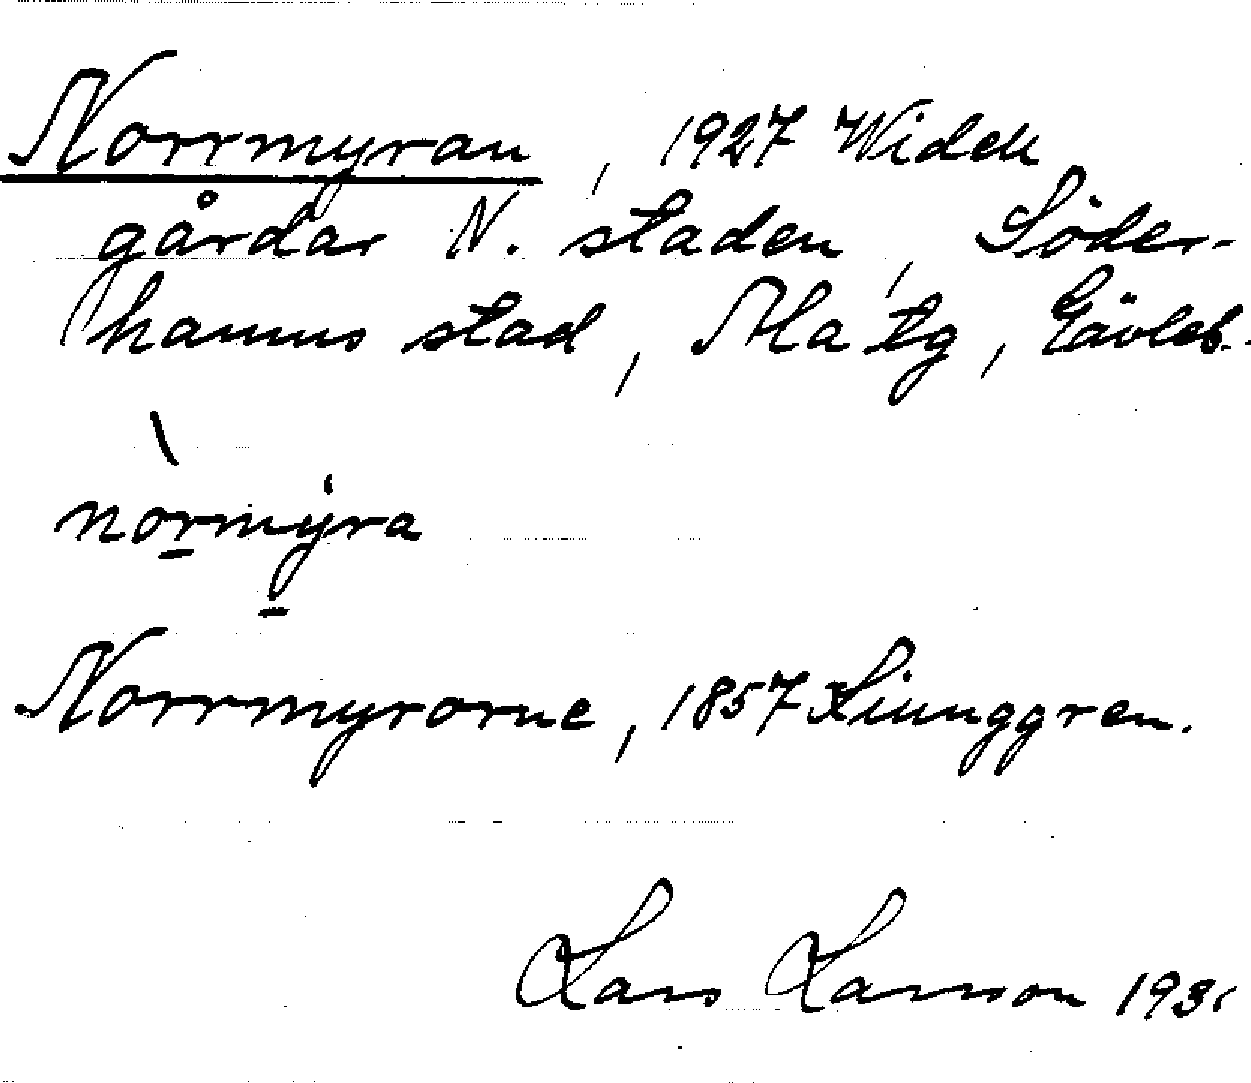 Norrmyran, 1927 Widell
gårdar N. staden, Söder-
hamns stad, Ala tg, Gävleb.
nòrmýra
Norrmyrorne, 1857 Ljunggren.
Lars Larsson